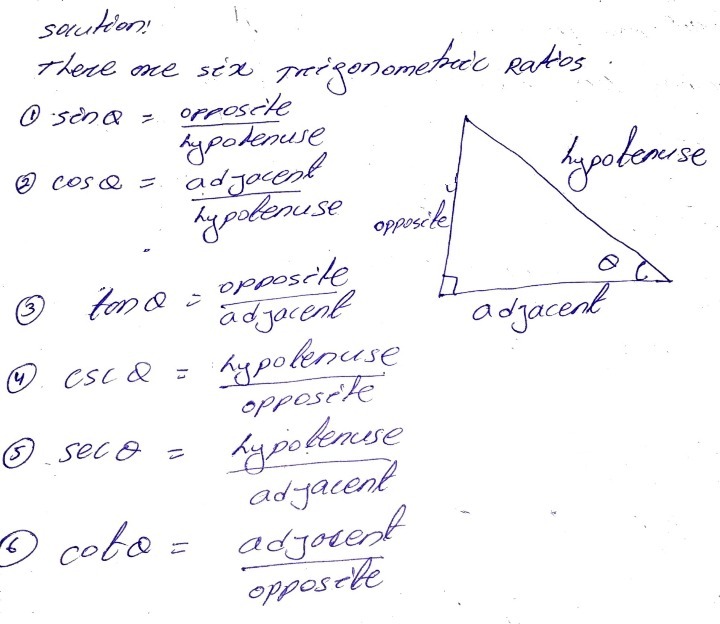 solution:
There are six Trigonometric Ratios.
① sinθ = opposite / hypotenuse
② cosθ = adjacent / hypotenuse
③ tanθ = opposite / adjacent
④ cscθ = hypotenuse / opposite
⑤ secθ = hypotenuse / adjacent
⑥ cotθ = adjacent / opposite
hypotenuse
opposite
θ
adjacent